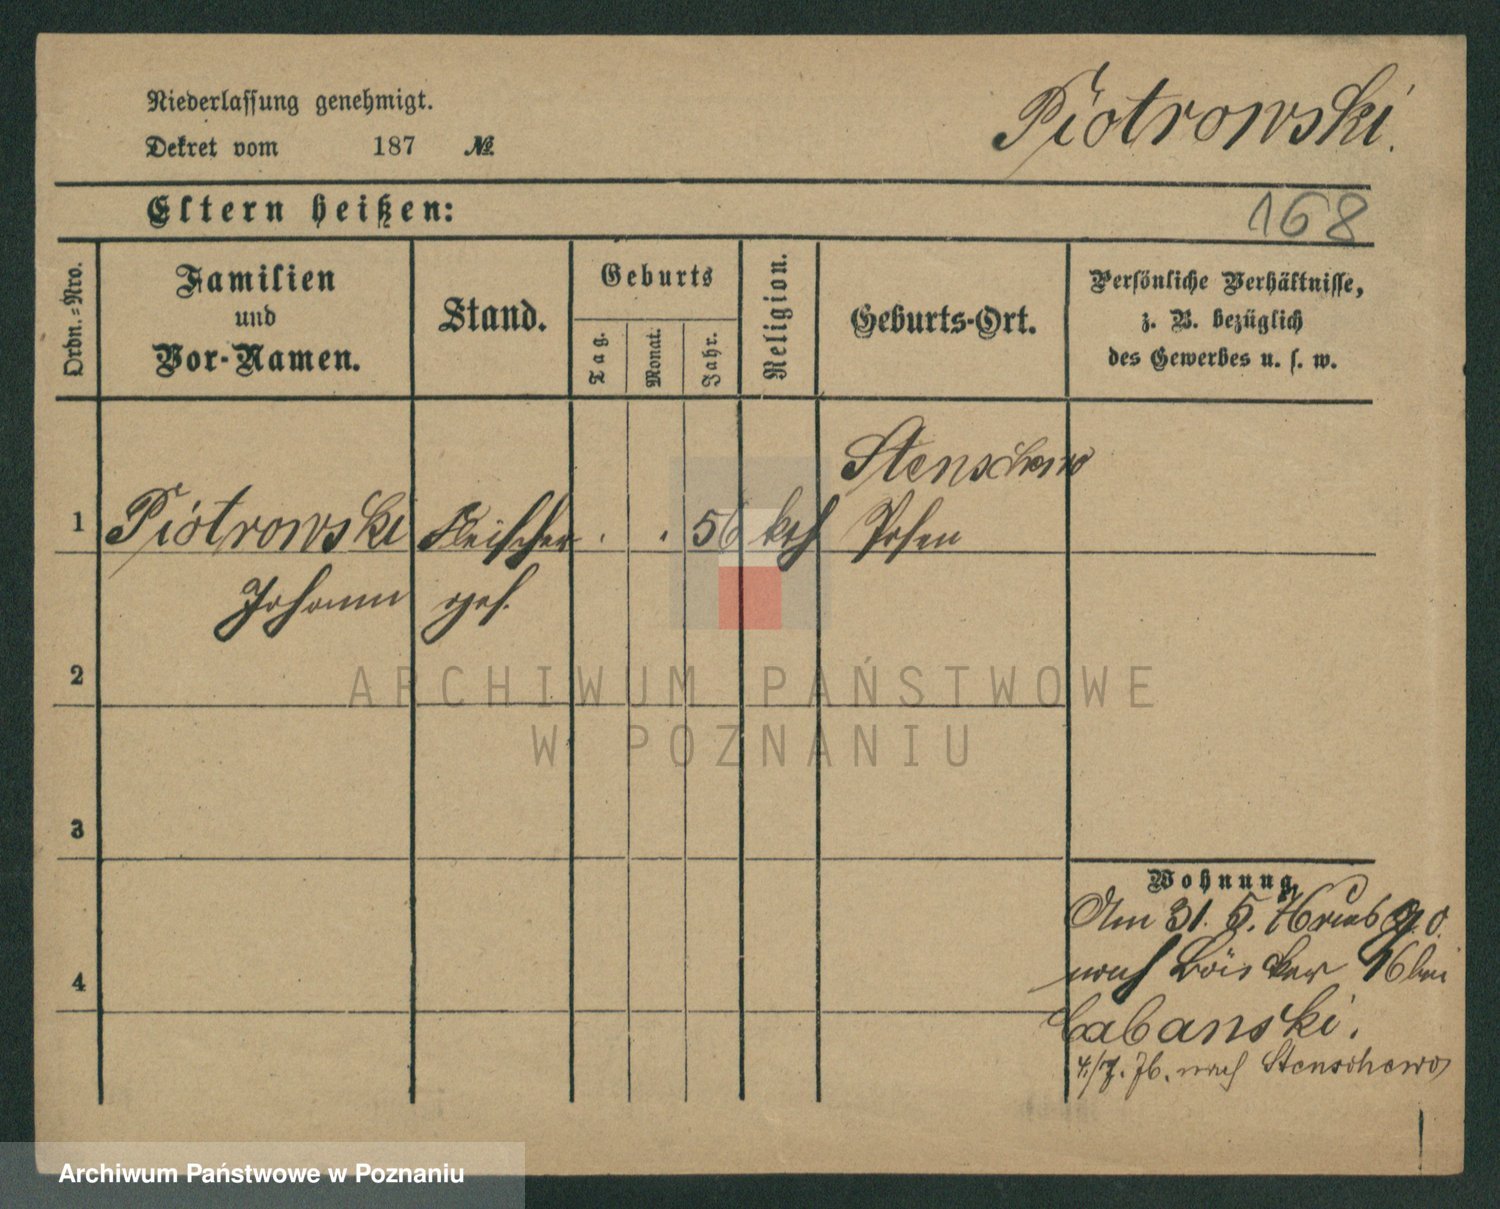 Niederlassung genehmigt.
Dekret vom 187 №
Piotrowski.
Eltern heißen:
168
Ordn.-Nro.
Familien
und
Vor-Namen.
Stand.
Geburts
Tag.
Monat.
Jahr.
Religion.
Geburts-Ort.
Persönliche Verhältnisse,
z. B. bezüglich
des Gewerbes u. s. w.
Stenschewo
1 Piotrowski Fleischer . . 56 kth Posen
Johann ges.
2
ARCHIWUM PAŃSTWOWE
W POZNANIU
3
Wohnung
Am 31. 5. 76 von
4
nach 16 bei
Cabanski.
4./7. 76. nach Stenschewo
Archiwum Państwowe w Poznaniu